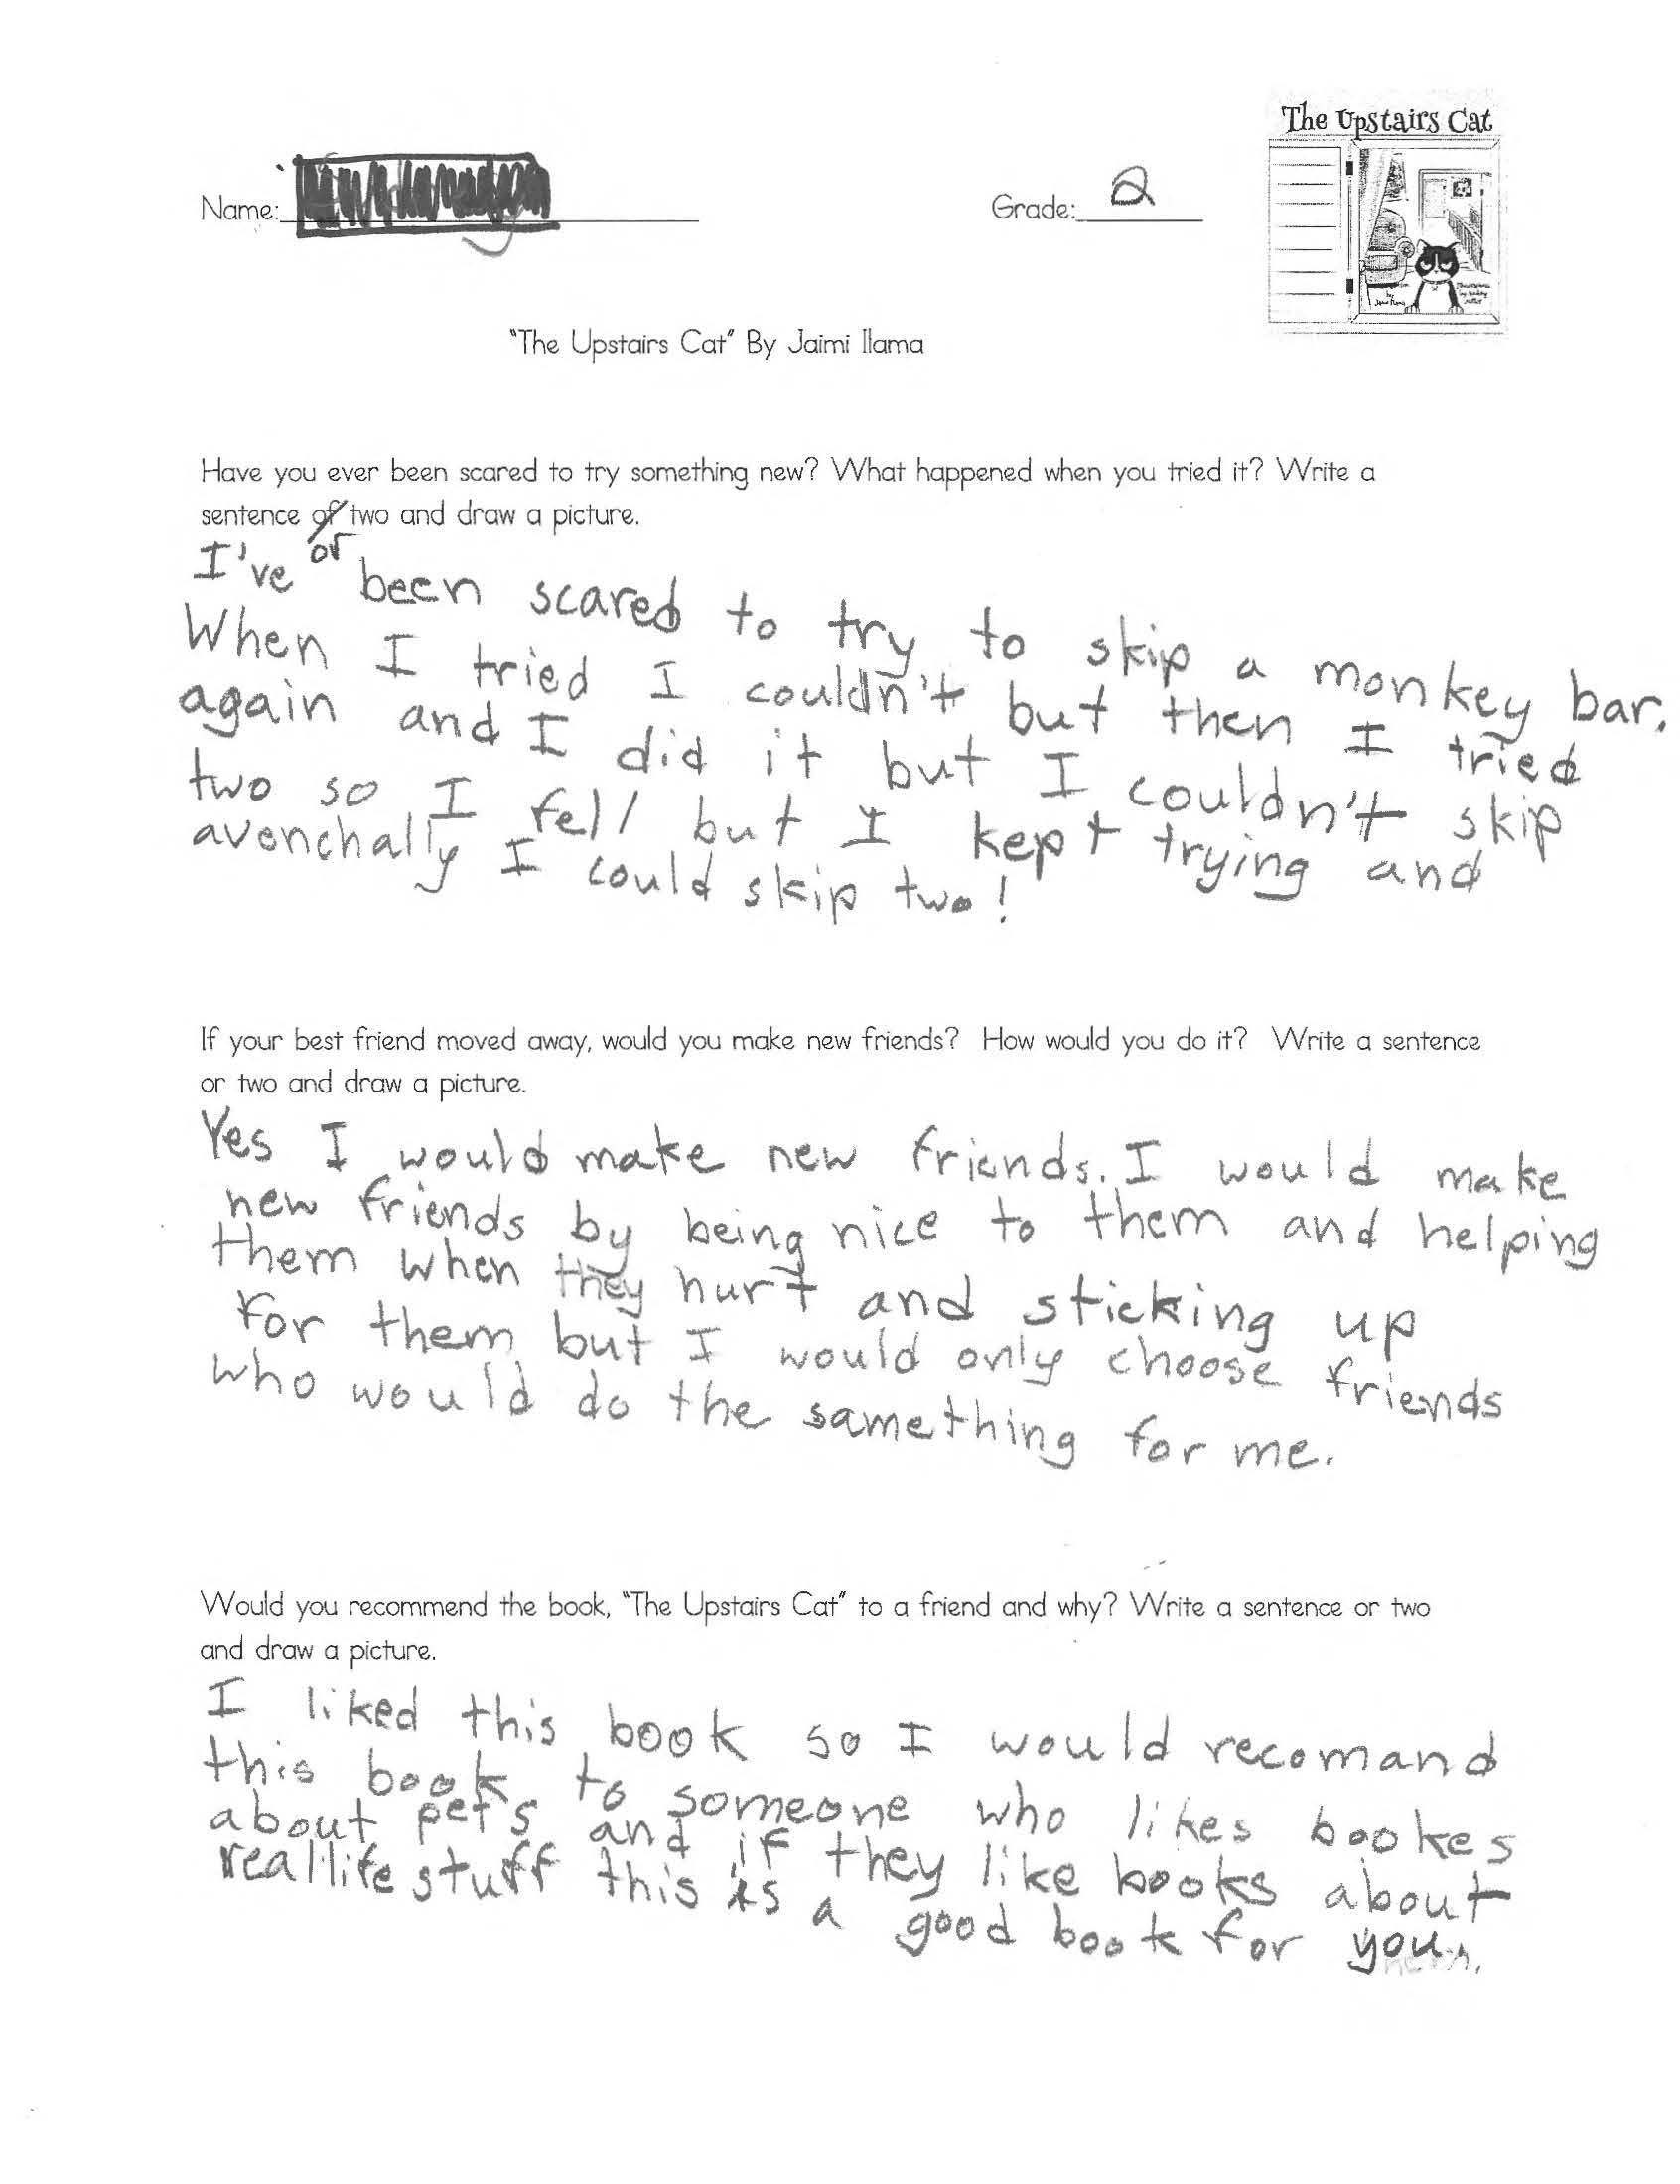 The Upstairs Cat
Name:
Grade: 2
"The Upstairs Cat" By Jaimi Ilama
Have you ever been scared to try something new? What happened when you tried it? Write a
sentence of two and draw a picture.
or
I've been scared to try to skip a monkey bar.
When I tried I couldn't but then I tried
again and I did it but I couldn't skip
two so I fell but I kept trying and
avenchally I could skip two!
If your best friend moved away, would you make new friends? How would you do it? Write a sentence
or two and draw a picture.
Yes I would make new friends. I would make
new friends by being nice to them and helping
them when they hurt and sticking up
for them but I would only choose friends
who would do the samething for me.
Would you recommend the book, "The Upstairs Cat" to a friend and why? Write a sentence or two
and draw a picture.
I liked this book so I would recomand
this book to someone who likes bookes
about pets and if they like books about
reallife stuff this is a good book for you.